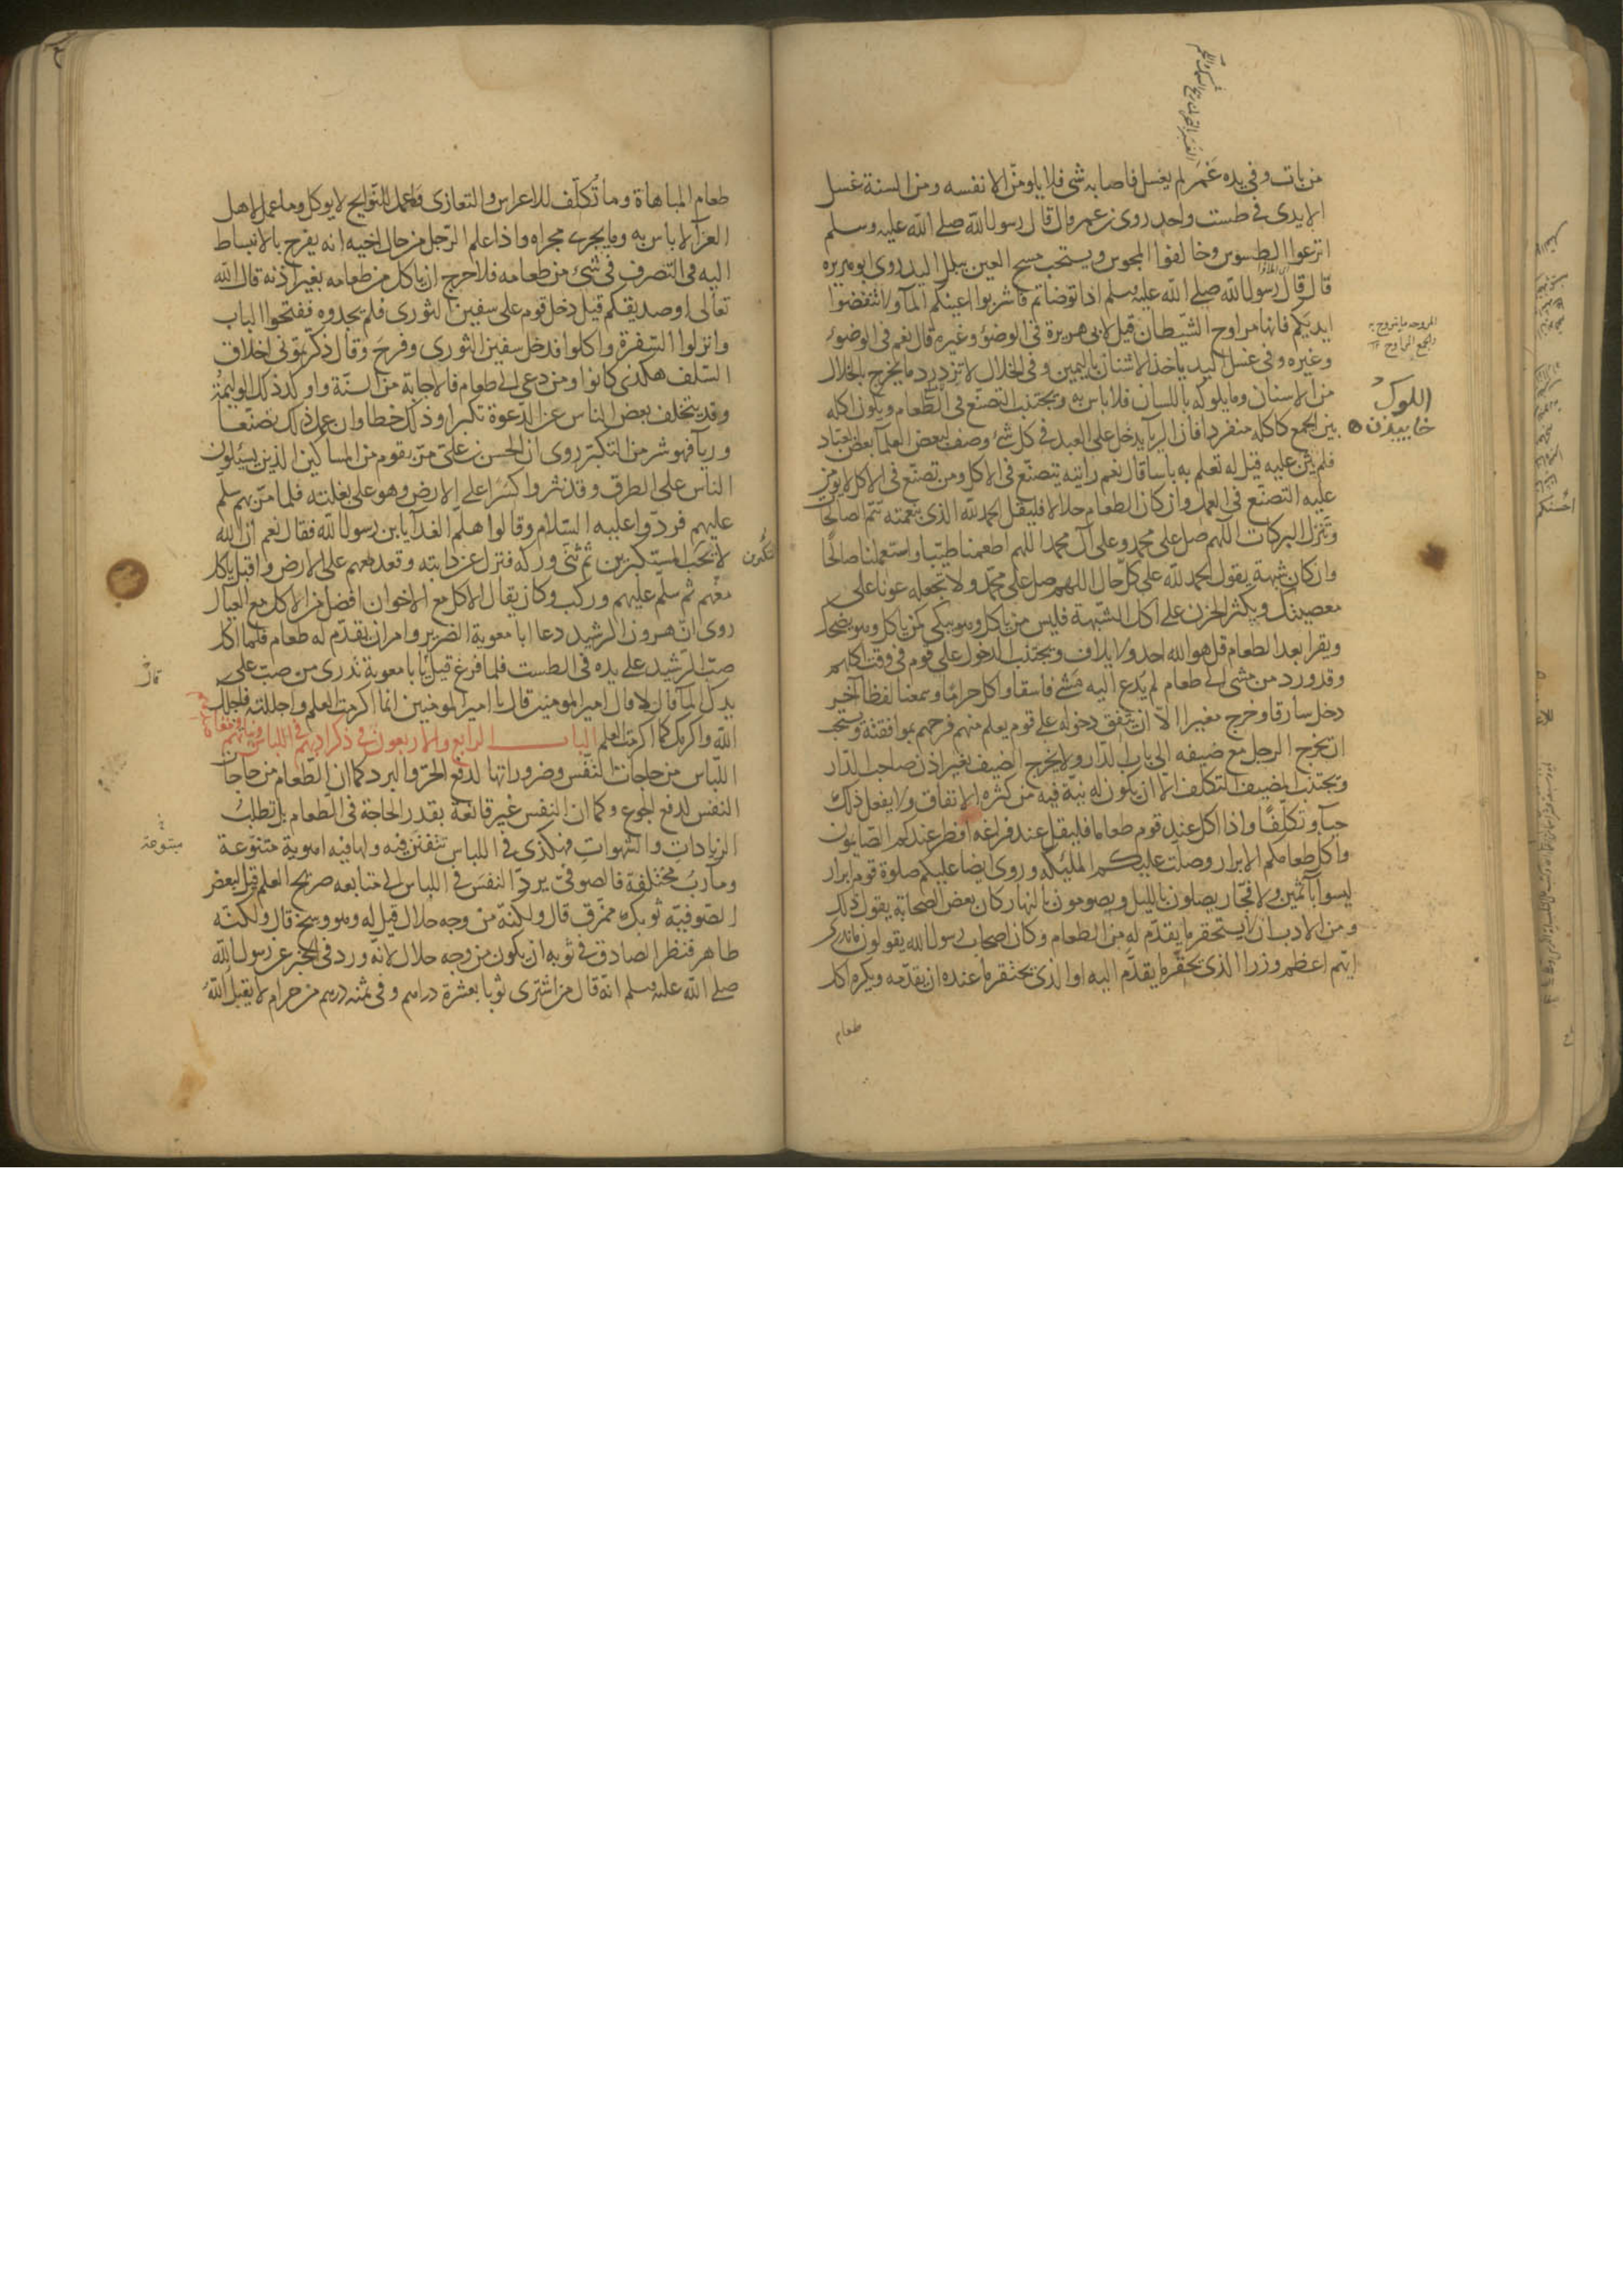 من بات وفي يده غمر لم يغسل فاصابه شئ فلا يلومن الا نفسه ومن السنة غسل
الايدى في طست واحد روى عن عمر قال قال رسول الله صلى الله عليه وسلم
اترعوا الطسوس وخالفوا المجوس ويستحب مسح العين ببلل اليد روى ابو هريرة
قال قال رسول الله صلى الله عليه وسلم اذا توضاتم فاشربوا اعينكم المآ ولا تنفضوا
ايديكم فانها مراوح الشيطان قيل لابى هريرة في الوضوء وغيره قال نعم في الوضوء
وغيره وفي غسل اليد ياخذ الاشنان باليمين وفي الخلال لا تزدرد ما يخرج بالخلال
من الاسنان وما يلوكه باللسان فلا باس به ويجتنب التصنع في الطعام ويكون اكله
بين الجمع كاكله منفردا فان الريآ يدخل على العبد في كل شئ وصف لبعض العلمآ بعض العباد
فلم يثن عليه قيل له تعلم به باسا قال نعم رايته يتصنع في الاكل ومن تصنع في الاكل لا يؤمن
عليه التصنع في العمل وان كان الطعام حلالا فليقل الحمد لله الذي بنعمته تتم الصالحات
وتنزل البركات اللهم صل على محمد وعلى آل محمد اللهم اطعمنا طيبا واستعملنا صالحا
وان كان شبهة يقول الحمد لله على كل حال اللهم صل على محمد ولا تجعله عونا على
معصيتك ويكثر الحزن على اكل الشبهة فليس من ياكل وهو يبكى كمن ياكل وهو يضحك
ويقرا بعد الطعام قل هو الله احد ولايلاف ويجتنب الدخول على قوم في وقت اكلهم
وقد ورد من مشى الى طعام لم يدع اليه مشى فاسقا واكل حراما وسمعنا لفظا آخر
دخل سارقا وخرج مغيرا الا ان يتفق دخوله على قوم يعلم منهم فرحهم بموافقته ويستحب
ان يخرج الرجل مع ضيفه الى باب الدار ولا يخرج الضيف بغير اذن صاحب الدار
ويجتنب المضيف التكلف الا ان يكون له نية فيه من كثرة الانفاق ولا يفعل ذلك
حيآ وتكلفا واذا اكل عند قوم طعاما فليقل عند فراغه افطر عندكم الصايمون
واكل طعامكم الابرار وصلت عليكم المليكة وروى ايضا عليكم صلوة قوم ابرار
ليسوا بآثمين ولا فجار يصلون بالليل ويصومون بالنهار كان بعض الصحابة يقول ذلك
ومن الادب ان لا يستحقر ما يقدم له من الطعام وكان اصحاب رسول الله يقولون ما ندرى
ايهم اعظم وزرا الذي يحقر ما يقدم اليه او الذي يحتقر ما عنده ان يقدمه ويكره اكل
طعام
اللوك
خاييدن
طعام المباهاة وما تكلف للاعراس والتعازى فما عمل للنوايح لا يوكل وما عمل لاهل
العزآ لا باس به وما يجرى مجراه واذا علم الرجل من حال اخيه انه يفرح بالانبساط
اليه في التصرف في شئ من طعامه فلا حرج ان ياكل من طعامه بغير اذنه قال الله
تعالى او صديقكم قيل دخل قوم على سفين الثورى فلم يجدوه ففتحوا الباب
وانزلوا السفرة واكلوا فدخل سفين الثورى وفرح وقال ذكرتمونى اخلاق
السلف هكذى كانوا ومن دعى الى طعام فالاجابة من السنة واوكد ذلك الوليمة
وقد يتخلف بعض الناس عن الدعوة تكبرا وذلك خطا وان عمل ذلك تصنعا
وريآ فهو شر من التكبر روى ان الحسن بن على مر بقوم من المساكين الذين يسئلون
الناس على الطرق وقد نثروا كسرا على الارض وهو على بغلته فلما مر بهم سلم
عليهم فردوا عليه السلام وقالوا هلم الغدآ يا بن رسول الله فقال نعم ان الله
لا يحب المستكبرين ثم ثنى وركه فنزل عن دابته وقعد معهم على الارض واقبل ياكل
معهم ثم سلم عليهم وركب وكان يقال الاكل مع الاخوان افضل من الاكل مع العيال
روى ان هرون الرشيد دعا ابا معوية الضرير وامر ان يقدم له طعام فلما اكل
صب الرشيد على يده في الطست فلما فرغ قيل يا با معوية تدرى من صب على
يدك المآ قال لا قال امير المومنين قال يا امير المومنين انما اكرمت العلم واجللته فاجلك
الله واكرمك كما اكرمت العلم الباب الرابع والاربعون في ذكر ادبهم في اللباس ونياتهم ومقاصدهم فيه
اللباس من حاجات النفس وضروراتها لدفع الحر والبرد كما ان الطعام من حاجات
النفس لدفع الجوع وكما ان النفس غير قانعة بقدر الحاجة في الطعام بل تطلب
الزيادات والشهوات فهكذى في اللباس تتفنن فيه ولها فيه اهوية متنوعة
ومآرب مختلفة فالصوفى يرد النفس في اللباس الى متابعه صريح العلم قيل لبعض
الصوفية ثوبك ممزق قال ولكنه من وجه حلال قيل له وهو وسخ قال ولكنه
طاهر فنظر الصادق في ثوبه ان يكون من وجه حلال لانه ورد في الخبر عن رسول الله
صلى الله عليه وسلم انه قال من اشترى ثوبا بعشرة دراهم وفي ثمنه درهم من حرام لا يقبل الله